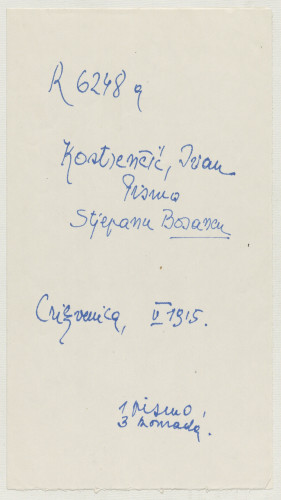 R 6248 a
Kostrenčić, Ivan
Pismo
Stjepanu Bosancu
Crikvenica, V 1915.
1 pismo,
3 komada.